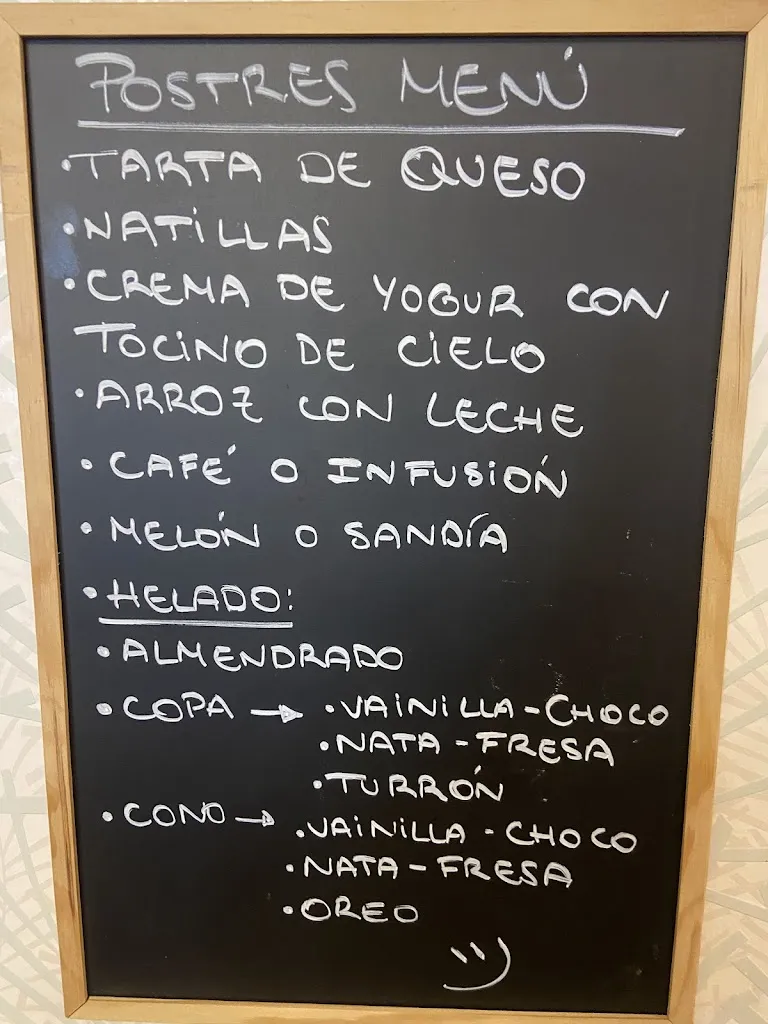 POSTRES MENÚ
·TARTA DE QUESO
·NATILLAS
·CREMA DE YOGUR CON
TOCINO DE CIELO
·ARROZ CON LECHE
·CAFÉ O INFUSIÓN
·MELÓN O SANDÍA
·HELADO:
·ALMENDRADO
·COPA → ·VAINILLA-CHOCO
·NATA-FRESA
·TURRÓN
·CONO → ·VAINILLA-CHOCO
·NATA-FRESA
·OREO